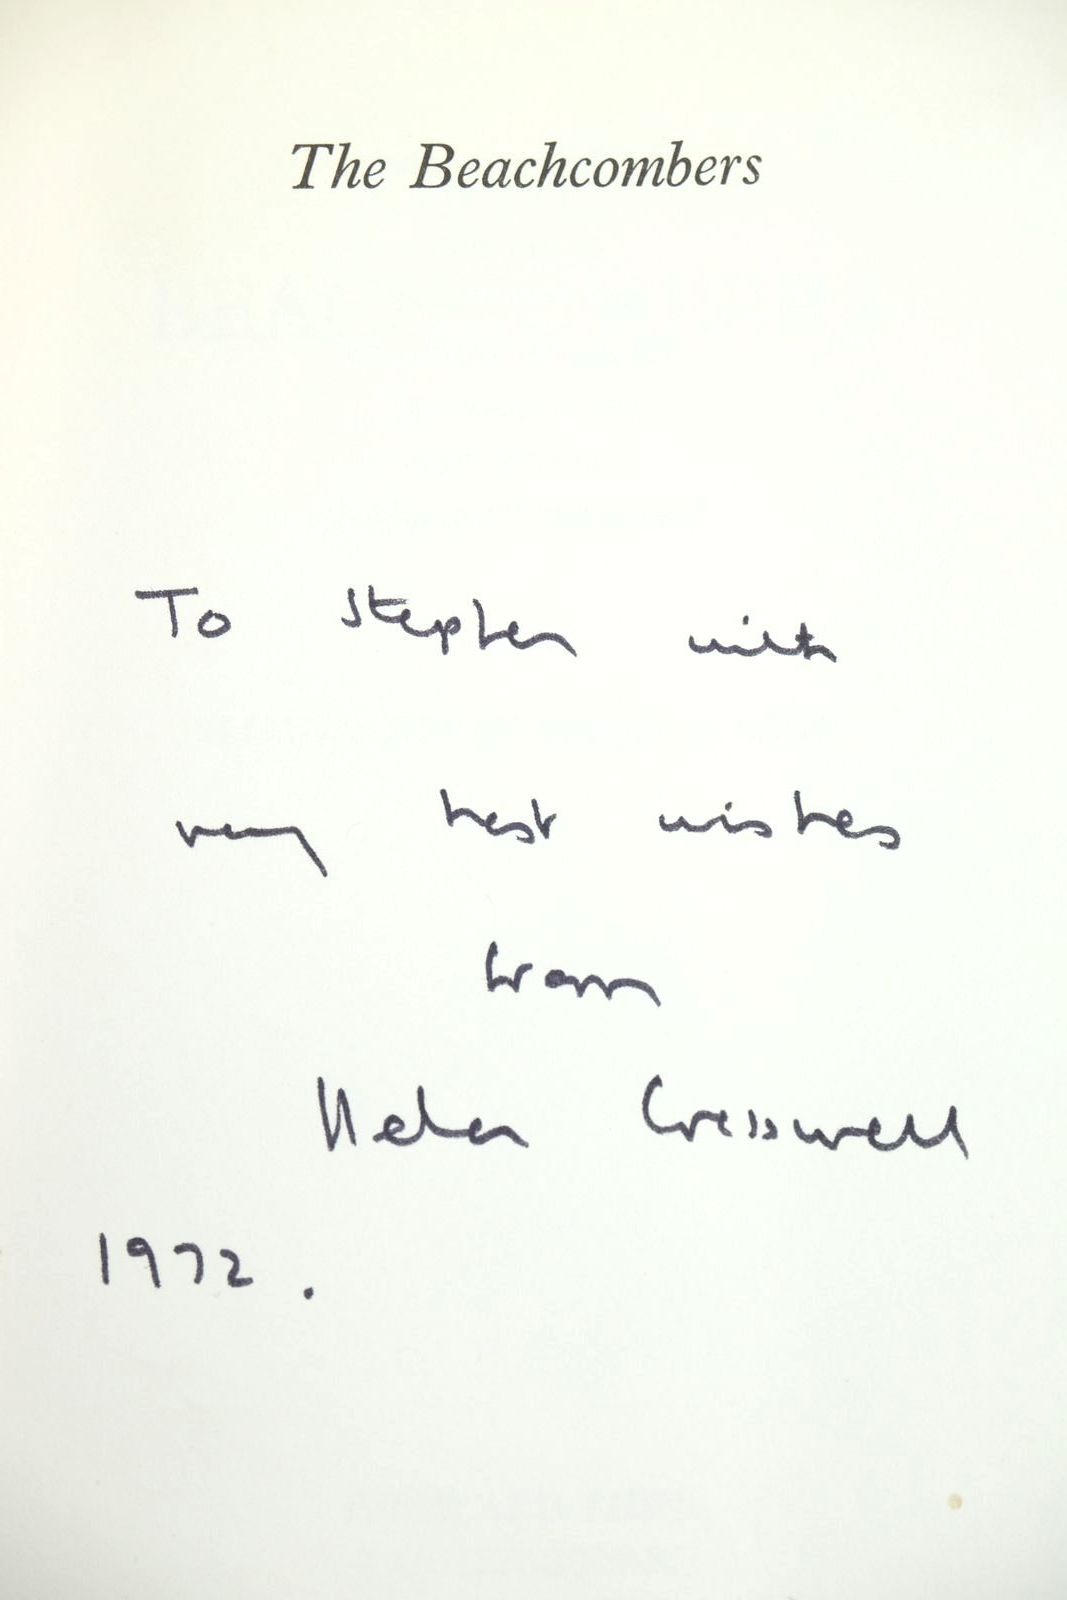 The Beachcombers
To Stephen with
very best wishes
from
Helen Cresswell
1972.